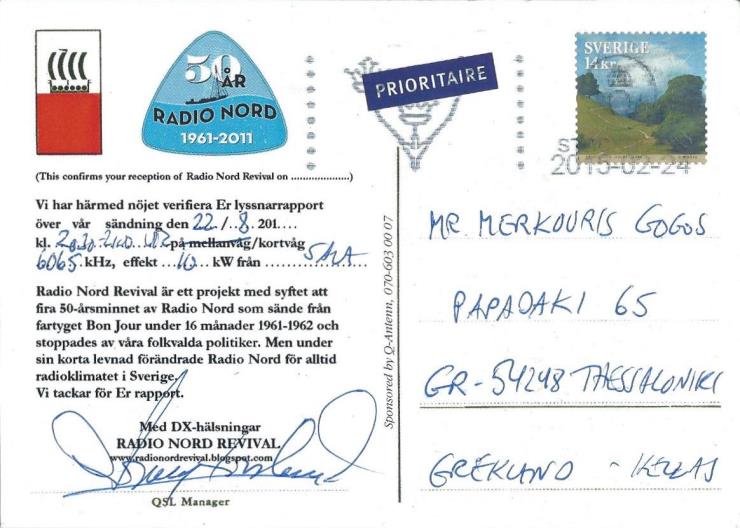 50
ÅR
RADIO NORD
1961-2011
PRIORITAIRE
SVERIGE
14 kr
2015-02-24
(This confirms your reception of Radio Nord Revival on ....................)
Vi har härmed nöjet verifiera Er lyssnarrapport
över vår sändning den 22./..8. 201....
kl. på mellanvåg/kortvåg
6065. kHz, effekt ...10... kW från
Radio Nord Revival är ett projekt med syftet att
fira 50-årsminnet av Radio Nord som sände från
fartyget Bon Jour under 16 månader 1961-1962 och
stoppades av våra folkvalda politiker. Men under
sin korta levnad förändrade Radio Nord för alltid
radioklimatet i Sverige.
Vi tackar för Er rapport.
Med DX-hälsningar
RADIO NORD REVIVAL
www.radionordrevival.blogspot.com
QSL Manager
Sponsored by Q-Antenn, 070-603 00 07
MR. MERKOURIS GOGOS
PAPADAKI 65
GR-54248 THESSALONIKI
GREKLAND - HELLAS